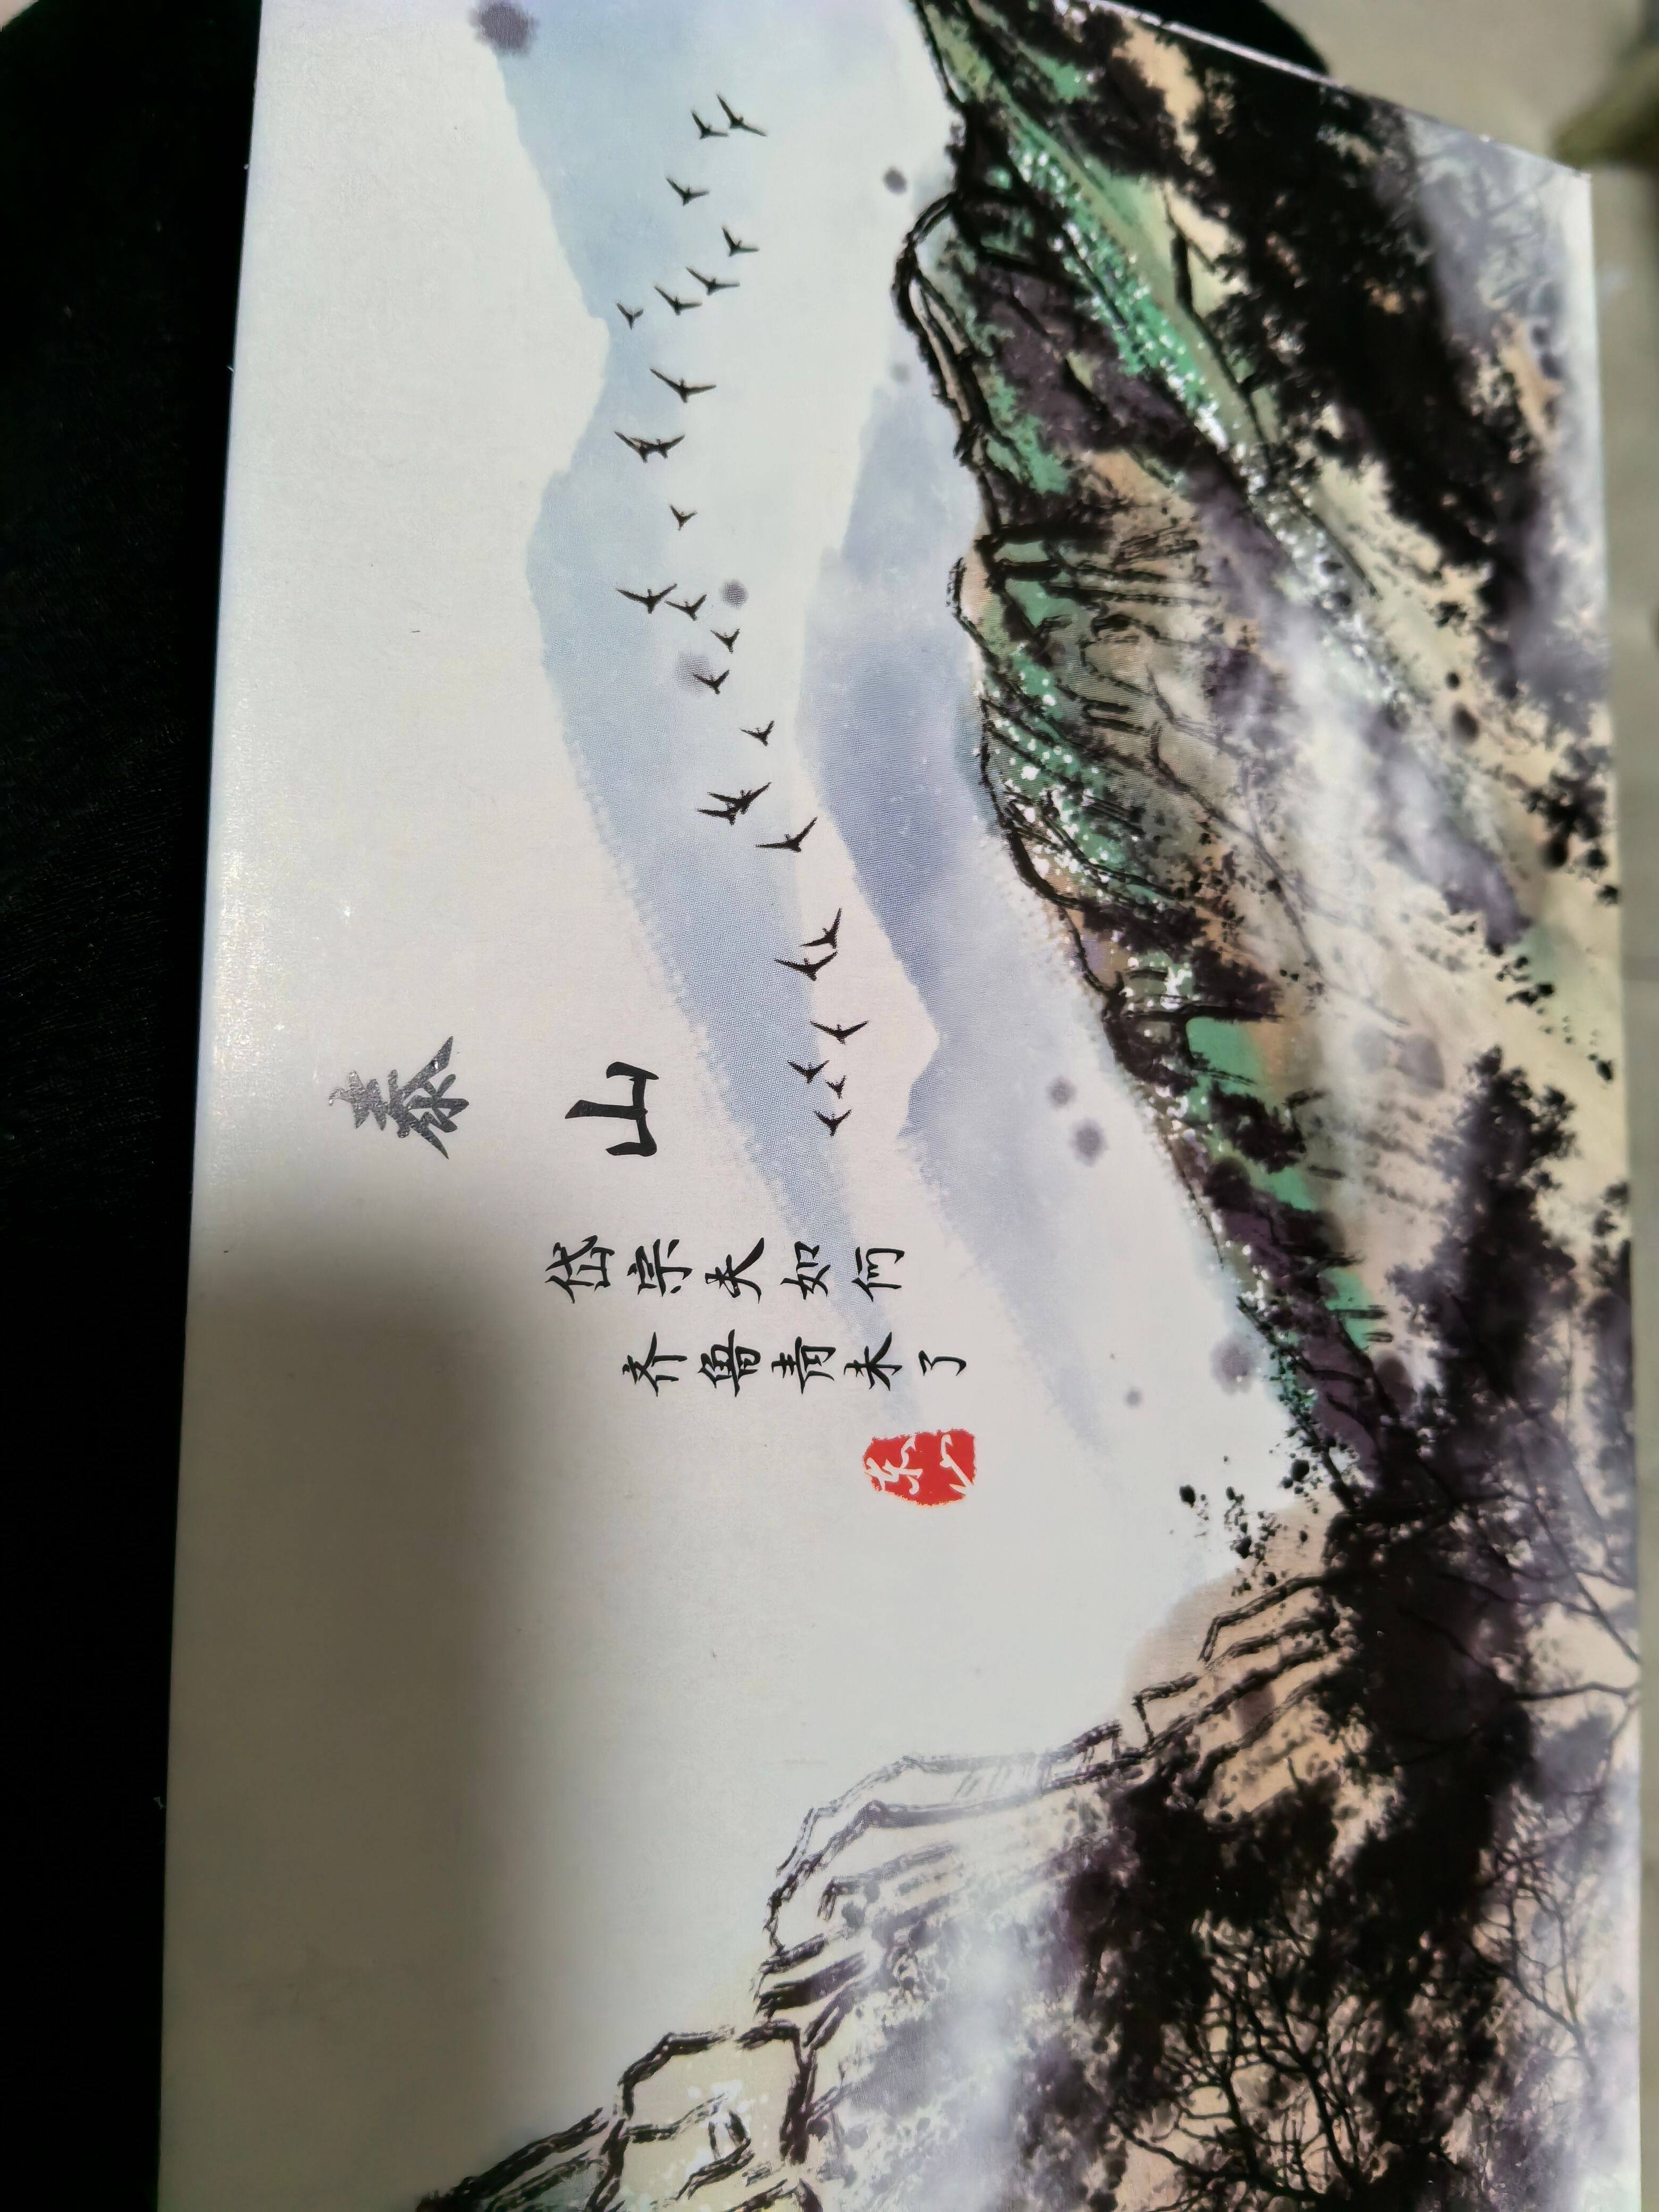 泰山
岱宗夫如何
齐鲁青未了
泰山